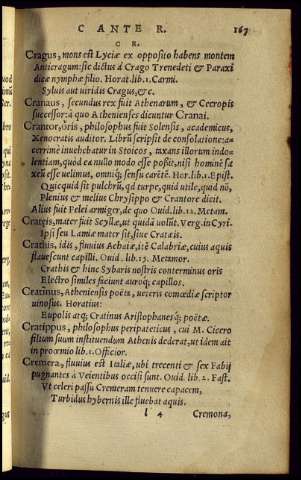 CANTER. 167
CR.
Cragus, mons est Lyciæ ex opposito habens montem
Anticragum: sic dictus à Crago Tremedeti & Paraxi
dicæ nymphæ filio. Horat. lib. 1. Carmi.
Syluis aut viridis Cragus, &c.
Cranaus, secundus rex fuit Athenarum, & Cecropis
successor: à quo Athenienses dicuntur Cranai.
Crantor, óris, philosophus fuit Solensis, academicus,
Xenocratis auditor. Librũ scripsit de consolatione: a-
cerrimè inuehebatur in Stoicos, taxans illorum indo-
lentiam, quòd ea nullo modo esse possit, nisi hominẽ sa
xeũ esse velimus, omniq; sensu carẽtẽ. Hor. lib. 1. Epist.
Quicquid sit pulchrũ, qd turpe, quid utile, quid nõ,
Plenius & melius Chrysippo & Crantore dicit.
Alius fuit Pelei armiger, de quo Ouid. lib. 12. Metam.
Cratęis, mater fuit Scyllæ, ut quidã volũt. Verg. in Cyri-
Ipsi seu Lamiæ mater sit, siue Cratæis.
Crathis, idis, fluuius Achaiæ, itẽ Calabriæ, cuius aquis
flauescunt capilli. Ouid. lib. 15. Metamor.
Crathis & hinc Sybaris nostris conterminus oris
Electro similes faciunt auroq; capillos.
Cratinus, Atheniensis poëta, veteris comœdiæ scriptor
uinosus. Horatius:
Eupolis atq; Cratinus Aristophanesq; poëtæ.
Cratippus, philosophus peripateticus, cui M. Cicero
filium suum instituendum Athenis dederat, ut idem ait
in proœmio lib. 1. Officior.
Cremera, fluuius est Italiæ, ubi trecenti & sex Fabij
pugnantes à Veientibus occisi sunt. Ouid. lib. 2. Fast.
Vt celeri passu Cremeram tenuere rapacem,
Turbidus hybernis ille fluebat aquis.
l 4 Cremona,